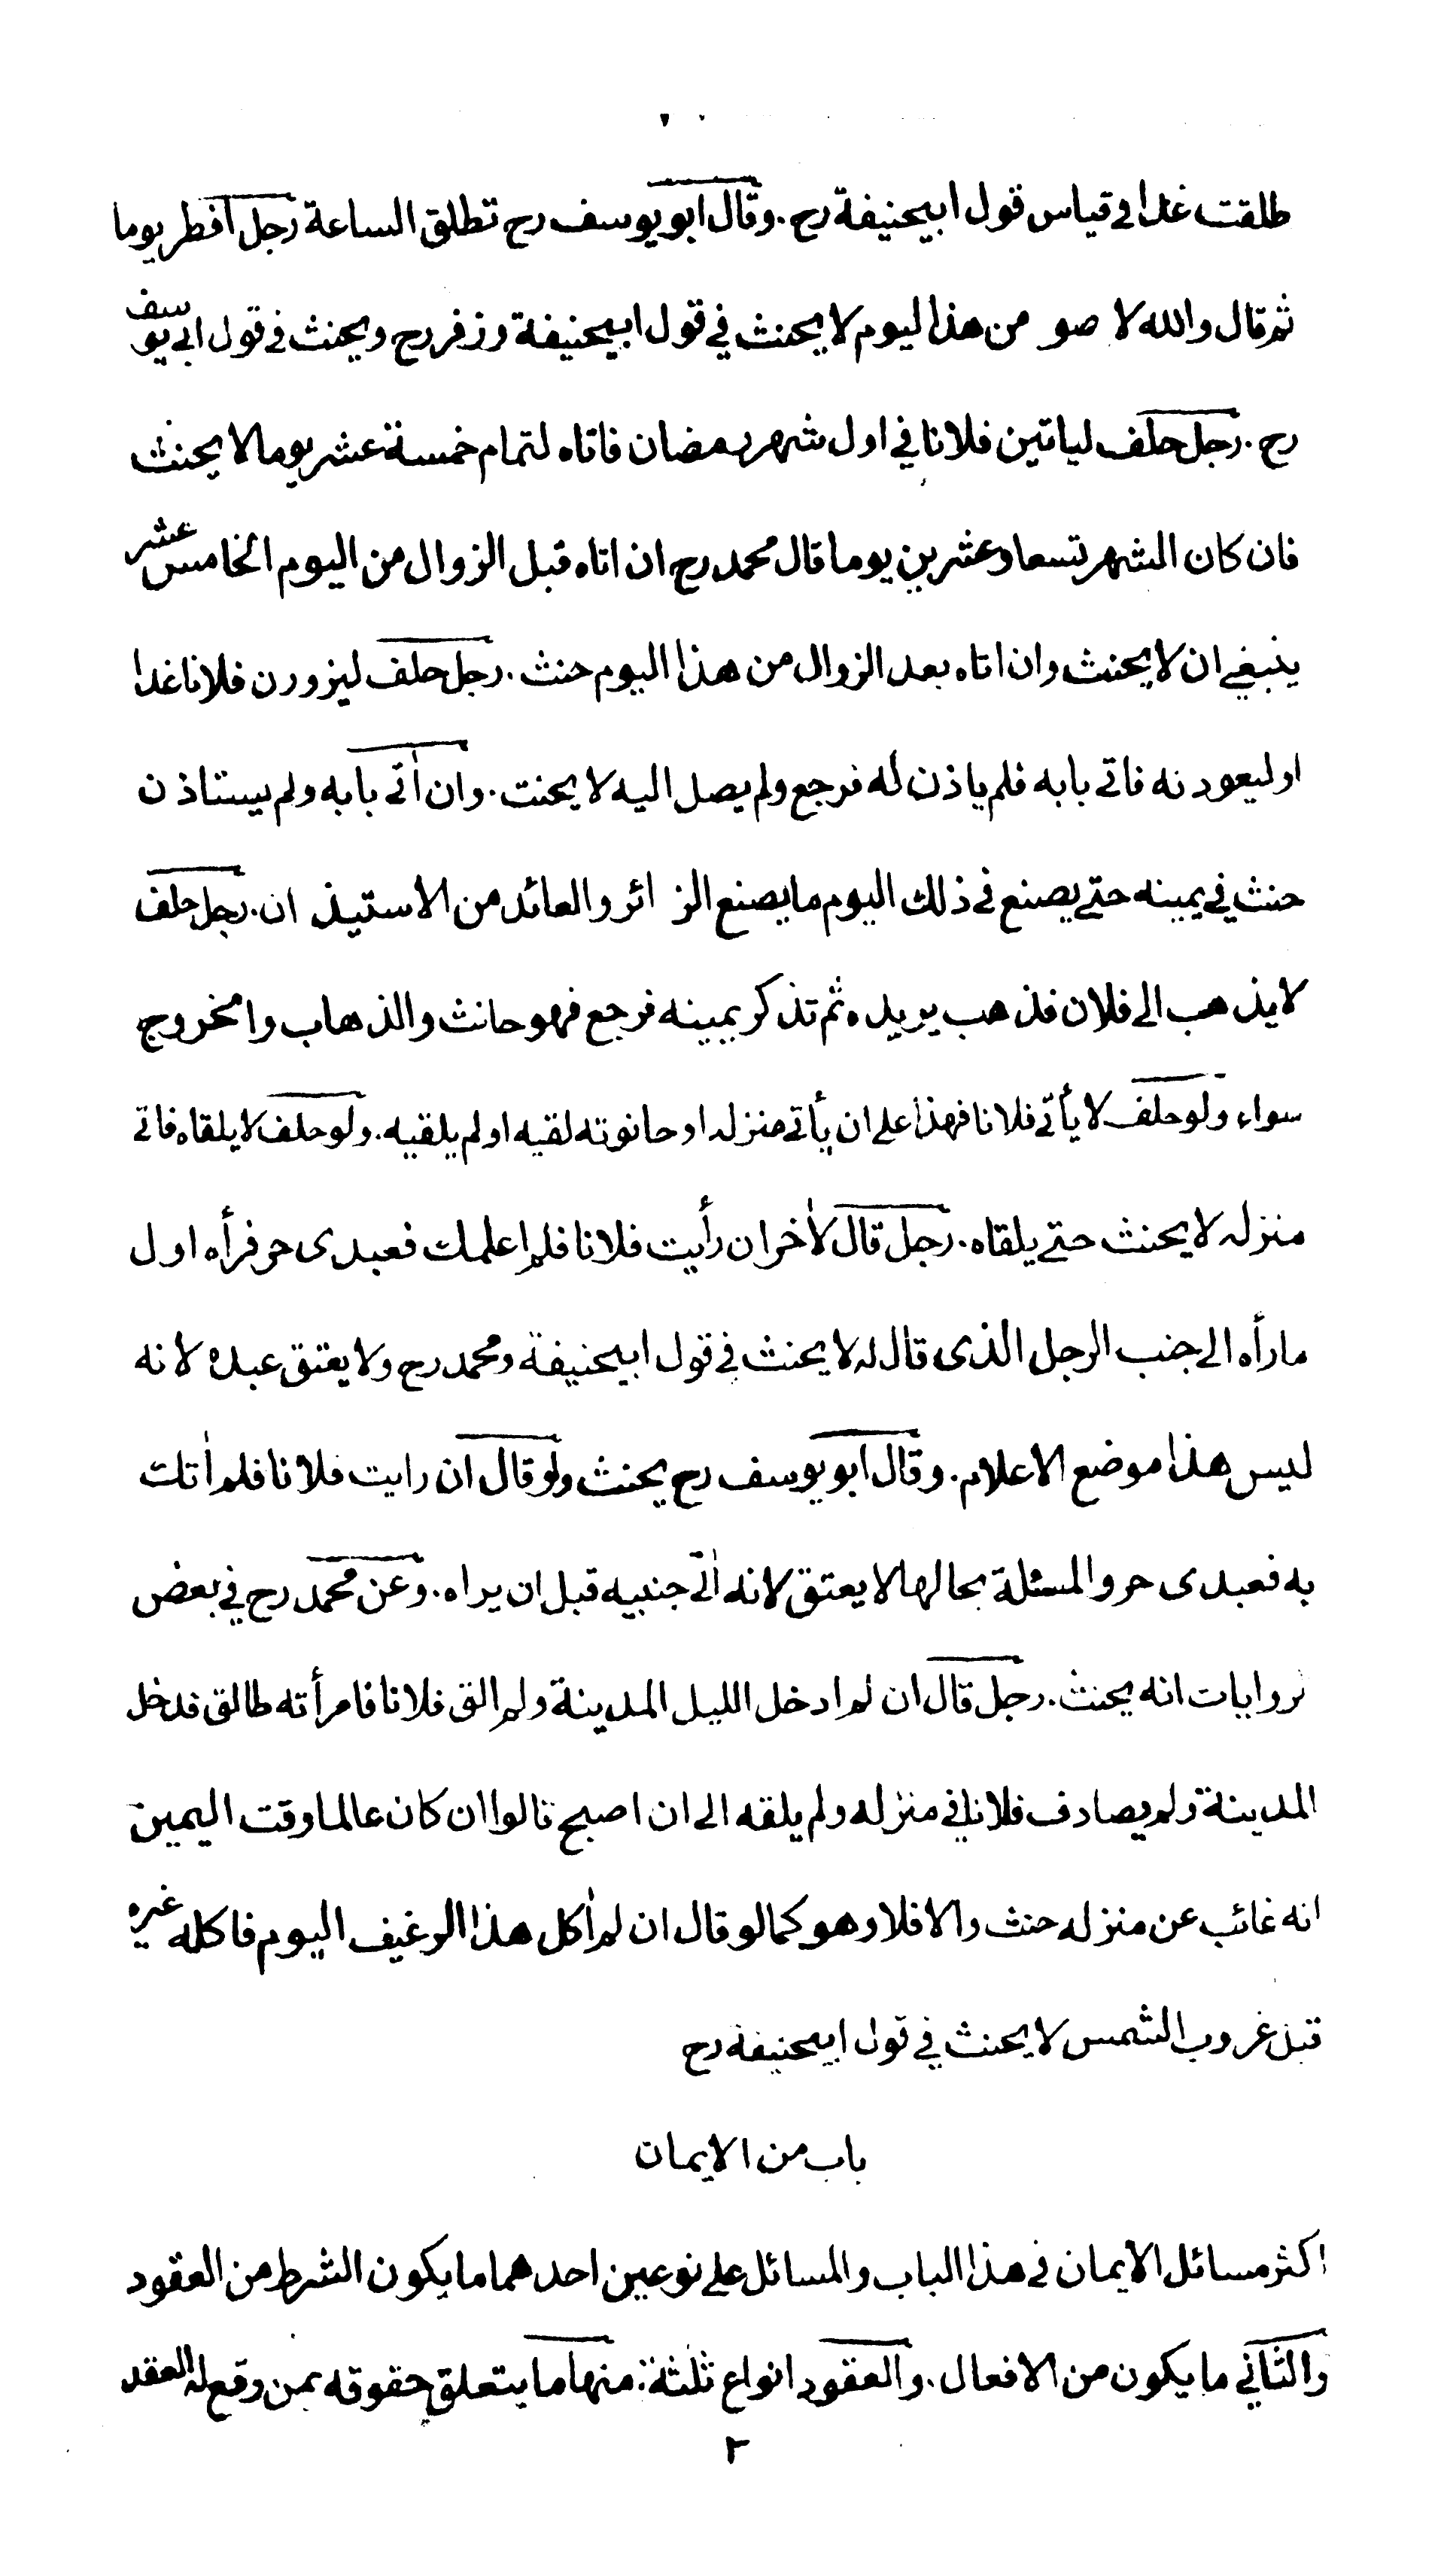 طلقت غدا في قياس قول ابيحنيفة رح. وقال ابو يوسف رح تطلق الساعة رجل افطر يوما
ثم قال والله لا صو من هذا اليوم لا يحنث في قول ابيحنيفة وزفر رح ويحنث في قول ابي يوسف
رح. رجل حلف لياتين فلانا في اول شهر رمضان فاتاه لتمام خمسة عشر يوما لا يحنث
فان كان الشهر تسعا وعشرين يوما قال محمد رح ان اتاه قبل الزوال من اليوم الخامس عشر
ينبغي ان لا يحنث وان اتاه بعد الزوال من هذا اليوم حنث. رجل حلف ليزورن فلانا غدا
او ليعودنه فاتى بابه فلم ياذن له فرجع ولم يصل اليه لا يحنت. وان أتى بابه ولم يستاذن
حنث في يمينه حتى يصنع في ذلك اليوم ما يصنع الزائر والعائد من الاستيذان. رجل حلف
لا يذهب الى فلان فذهب يريده ثم تذكر يمينه فرجع فهو حانث والذهاب والخروج
سواء ولو حلف لا يأتى فلانا فهذا على ان يأتى منزله او حانوته لقيه او لم يلقيه. ولو حلف لا يلقاه فاتى
منزله لا يحنث حتى يلقاه. رجل قال لأخر ان رأيت فلانا فلم اعلمك فعبدى حر فرأه اول
ما رأه الى جنب الرجل الذى قال له لا يحنث في قول ابيحنيفة ومحمد رح ولا يعتق عبده لانه
ليس هذا موضع الاعلام. وقال ابو يوسف رح يحنث ولو قال ان رايت فلانا فلم أتك
به فعبدى حر والمسئلة بحالها لا يعتق لانه أتى جنبيه قبل ان يراه. وعن محمد رح في بعض
روايات انه يحنث. رجل قال ان لم ادخل الليل المدينة ولم الق فلانا فامرأته طالق فدخل
المدينة ولم يصادف فلانا في منزله ولم يلقه الى ان اصبح قالوا ان كان عالما وقت اليمين
انه غائب عن منزله حنث والا فلا وهو كما لو قال ان لم أكل هذا الرغيف اليوم فاكله غيره
قبل غروب الشمس لا يحنث في قول ابيحنيفة رح
باب من الايمان
اكثر مسائل الايمان في هذا الباب والمسائل على نوعين احدهما ما يكون الشرط من العقود
والثاني ما يكون من الافعال. والعقود انواع ثلثة: منها ما يتعلق حقوقه بمن وقع له العقد
٢